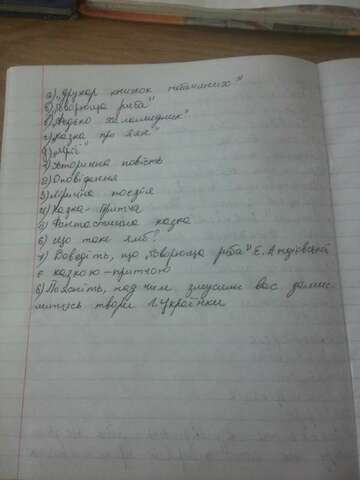 а) „Друкар книжок небачених"
б) „Говорюща риба"
в) „Федько халамидник"
г) „Казка про яян"
д) „Мрії"
1) Історична повість
2) Оповідання
3) Лірична поезія
4) Казка-притча
5) Фантастична казка
6) Що таке ямб?
7) Доведіть, що „Говорюща риба" Е. Андієвської
є казкою-притчою
8) Поясніть, над чим змусили вас замис
литись твори Л. Українки